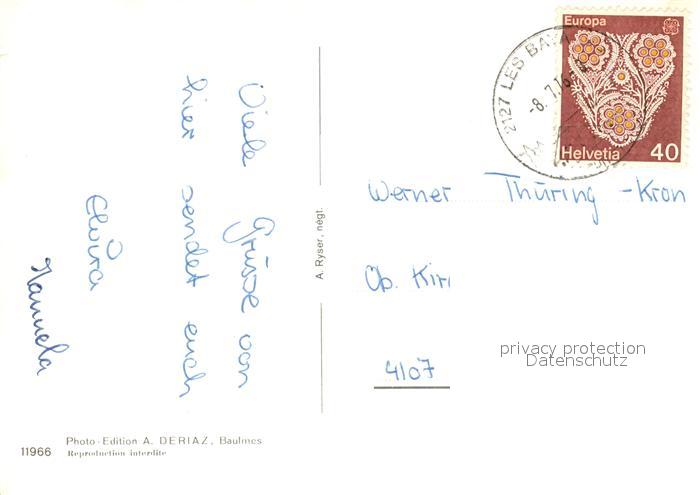 Viele Grüsse von
hier sendet euch
Elvira
Manuela
A. Ryser, négt.
11966
Photo-Edition A. DERIAZ, Baulmes
Reproduction interdite
2127 LES BAYA
-8.7.76
Europa
Helvetia 40
Werner Thüring-Kron
Ob. Kir
4107
privacy protection
Datenschutz